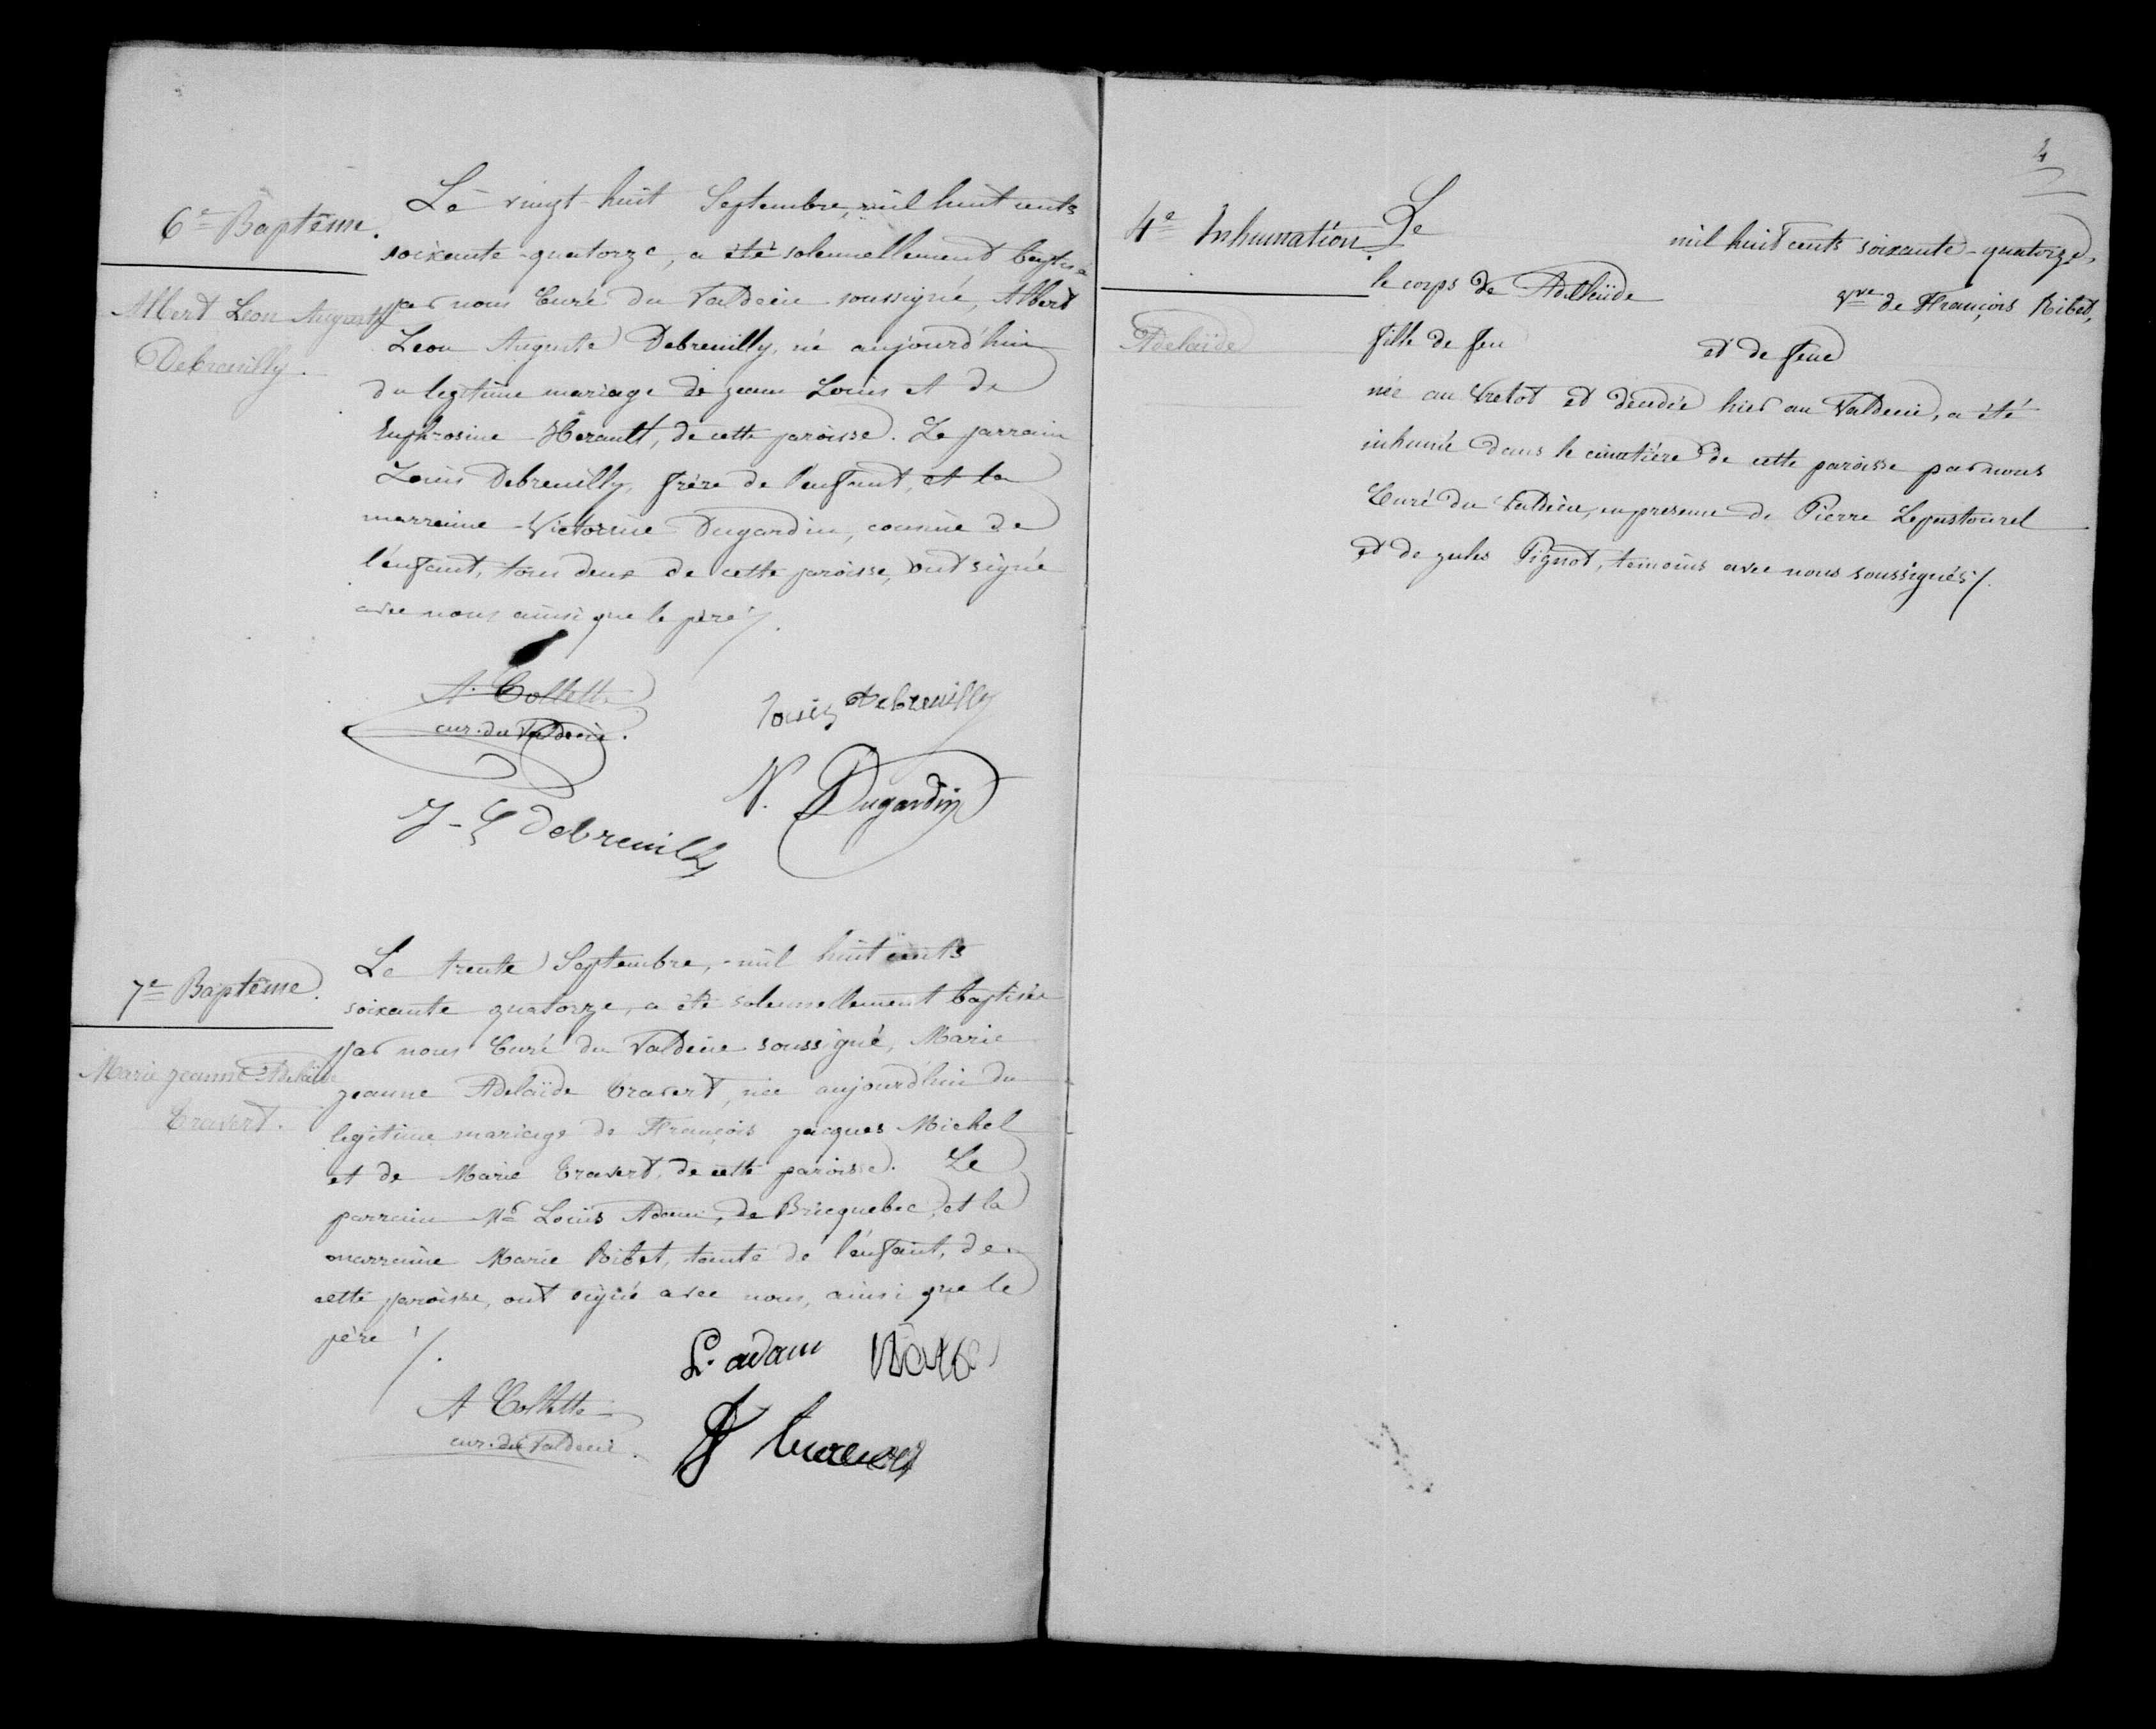 6e Baptême.
Albert Leon Auguste
Debreuilly.
Le vingt-huit Septembre, mil huit cents
soixante-quatorze, a été solennellement baptisé
par nous Curé du Valdecie soussigné, Albert
Leon Auguste Debreuilly, né aujourd'hui
du legitime mariage de jean Louis et de
Euphrosine Hérault, de cette paroisse. Le parrain
Louis Debreuilly, frère de l'enfant, et la
marraine Victorine Dugardin, cousine de
l'enfant, tous deux de cette paroisse, ont signé
avec nous ainsi que le père /.
A. Collette
cur. du Valdecie.
Louis Debreuilly
V. Dugardin
J-L Debreuilly
7e Baptême.
Marie jeanne Adelaïde
Travert.
Le trente Septembre, mil huit cents
soixante quatorze, a été solennellement baptisée
par nous Curé du Valdecie soussigné, Marie
jeanne Adelaïde Travert, née aujourd'hui du
legitime mariage de François jacques Michel
et de Marie Travert, de cette paroisse. Le
parrain Mr Louis Adam, de Bricquebec, et la
marraine Marie Ribet, tante de l'enfant, de
cette paroisse, ont signé avec nous, ainsi que le
père /.
L. adam
A Collette
cur. du Valdecie.
4
4e Inhumation.
Adelaïde
Le mil huit cents soixante-quatorze,
le corps de Adelaïde vve de François Ribet,
fille de feu et de feue
née au Vretot et décédée hier au Valdecie, a été
inhumé dans le cimetière de cette paroisse par nous
Curé du Valdécie, en presence de Pierre Lepastourel
et de jules Pignot, temoins avec nous soussignés /.